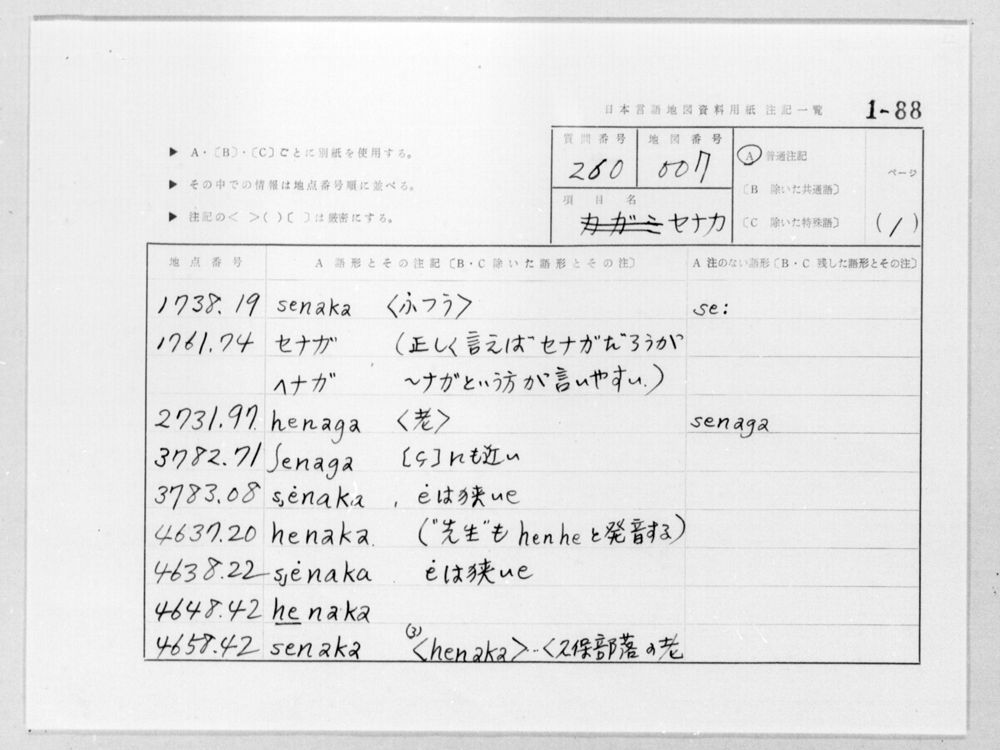 日本言語地図資料用紙 注記一覧 1-88
▶ A・〔B〕・〔C〕ごとに別紙を使用する。
▶ その中での情報は地点番号順に並べる。
▶ 注記の< >( )〔 〕は厳密にする。
質問番号 地図番号
260 007
項目名
カガミ セナカ
A 普通注記
〔B 除いた共通語〕
〔C 除いた特殊語〕
ページ
(1)
地点番号 A 語形とその注記〔B・C 除いた語形とその注〕 A 注のない語形〔B・C 残した語形とその注〕
1738.19 senaka 〈ふつう〉 se:
1761.74 セナガ (正しく言えばセナガだろうが
ヘナガ ヘナガという方が言いやすい.)
2731.97 henaga 〈老〉 senaga
3782.71 ʃenaga [ç]にも近い
3783.08 sjėnaka . ėは狭いe
4637.20 henaka. ("先生"もhenheと発音する)
4638.22 sjėnaka . ėは狭いe
4648.42 henaka
4658.42 senaka (3)〈henaka〉‥久保部落の老